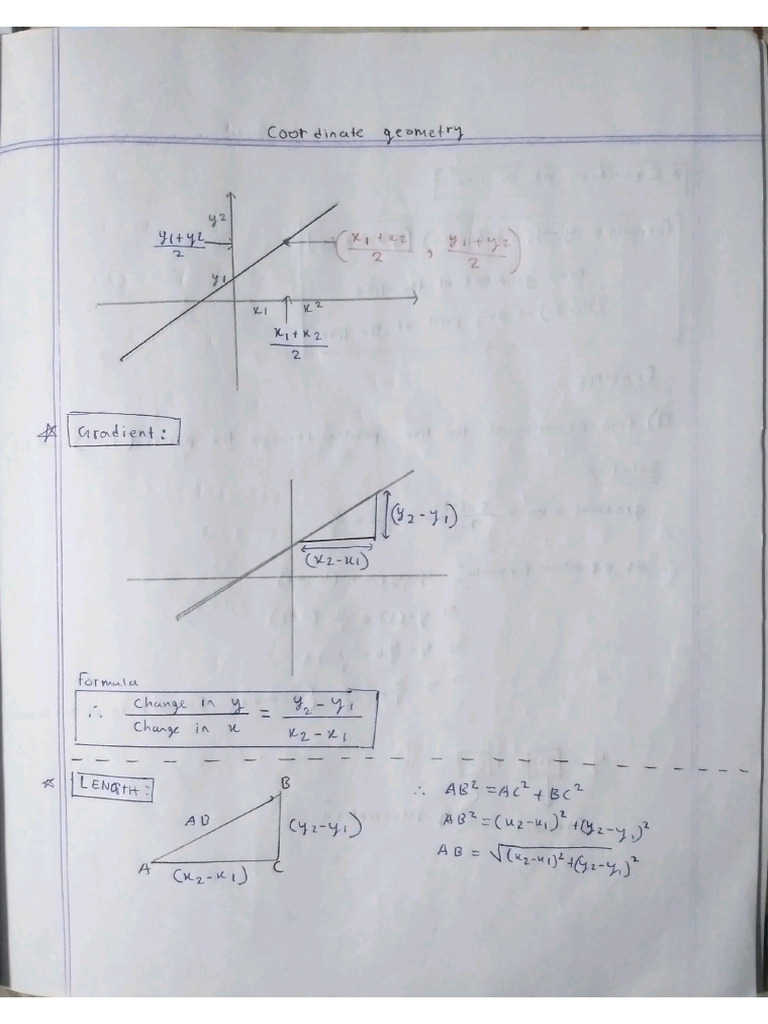 Coordinate geometry
y2
y1+y2/2
(x1+x2/2, y1+y2/2)
y1
x1 x2
x1+x2/2
Gradient:
(y2-y1)
(x2-x1)
Formula
∴ Change in y/Change in x = y2-y1/x2-x1
LENGTH:
B
AB
(y2-y1)
A
C
(x2-x1)
∴ AB² = AC² + BC²
AB² = (x2-x1)² + (y2-y1)²
AB = √(x2-x1)² + (y2-y1)²